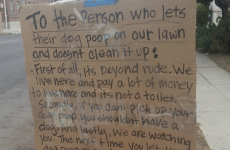 To the Person who lets
their dog poop on our lawn
and doesnt clean it up:
First of all, its beyond rude. We
live here and pay a lot of money
to live here and its not a toilet.
Secondly, if you cant pick up your
dog poop you shouldnt have a
dog. And lastly, We are watching
you. The next time you let